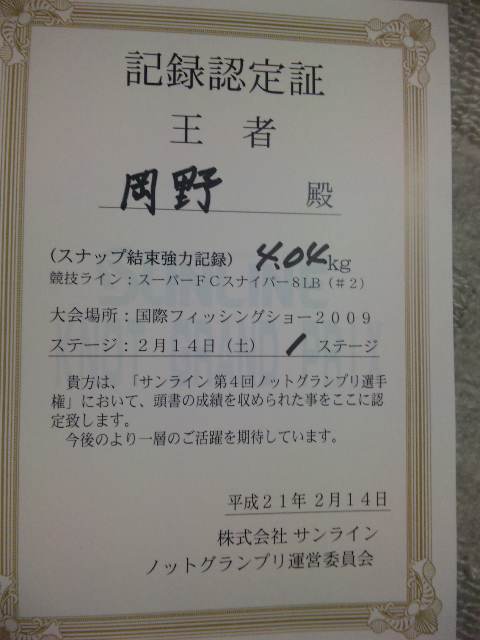 記録認定証
王 者
岡野 殿
(スナップ結束強力記録) 4.04kg
競技ライン：スーパーFCスナイパー8LB（＃2）
大会場所：国際フィッシングショー２００９
ステージ：２月１４日（土） 1 ステージ
貴方は、「サンライン 第４回ノットグランプリ選手
権」において、頭書の成績を収められた事をここに認
定致します。
今後のより一層のご活躍を期待しています。
平成２１年 ２月１４日
株式会社 サンライン
ノットグランプリ運営委員会